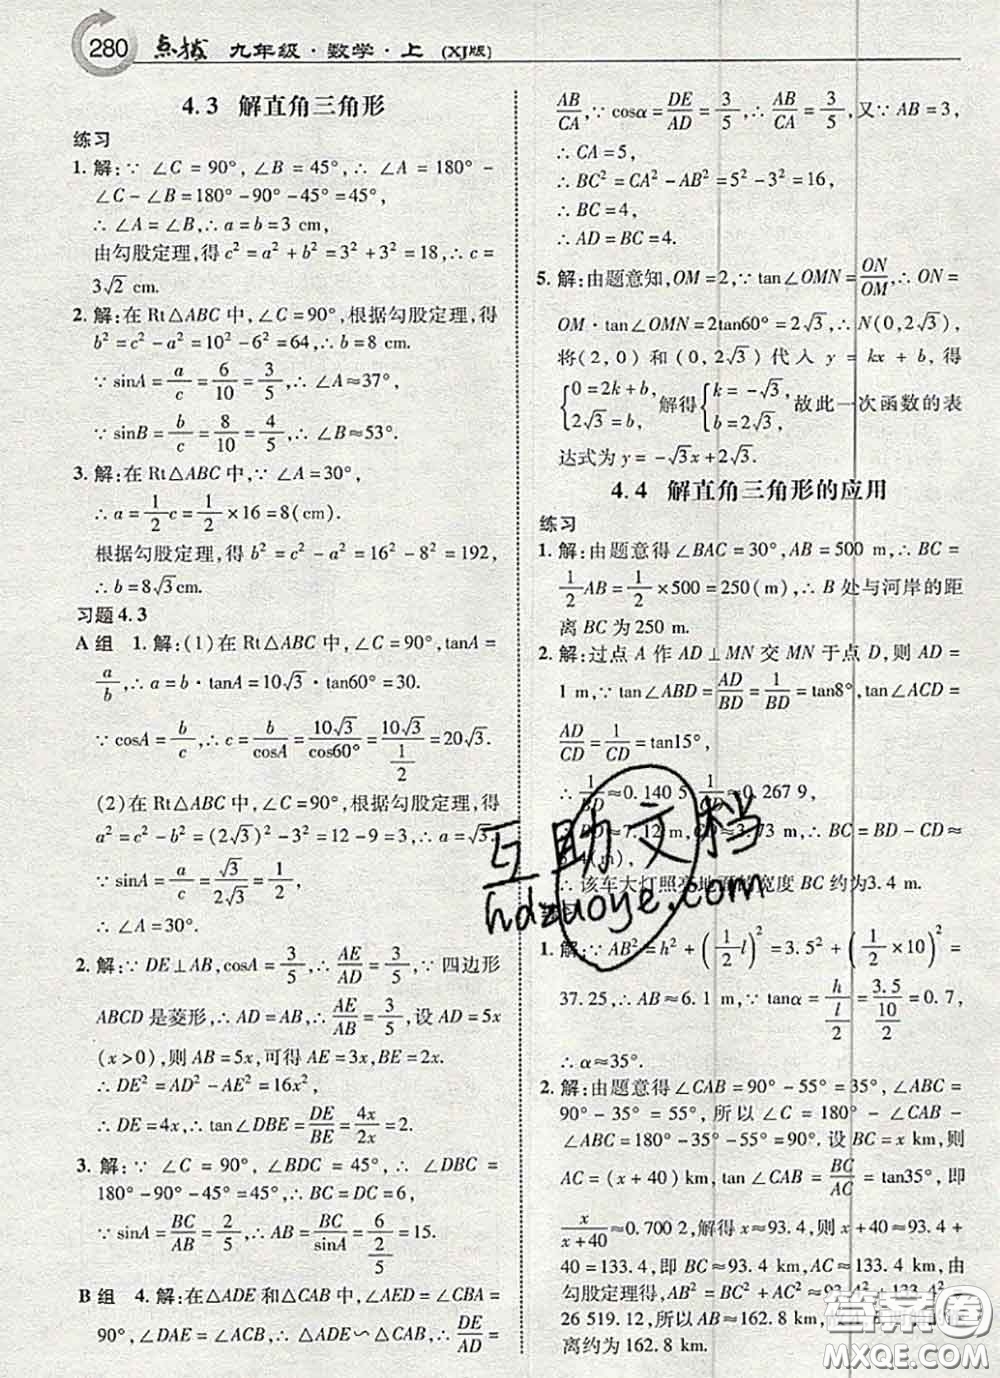 280 点拨 九年级·数学·上 (XJ版)
4.3 解直角三角形
练习
1. 解:∵ ∠C = 90°, ∠B = 45°, ∴ ∠A = 180° -
∠C - ∠B = 180° - 90° - 45° = 45°,
∴ ∠A = ∠B, ∴ a = b = 3 cm,
由勾股定理,得 c² = a² + b² = 3² + 3² = 18, ∴ c =
3√2 cm.
2. 解:在 Rt△ABC 中, ∠C = 90°, 根据勾股定理,得
b² = c² - a² = 10² - 6² = 64, ∴ b = 8 cm.
∵ sinA = a/c = 6/10 = 3/5, ∴ ∠A ≈ 37°,
∵ sinB = b/c = 8/10 = 4/5, ∴ ∠B ≈ 53°.
3. 解:在 Rt△ABC 中, ∵ ∠A = 30°,
∴ a = 1/2 c = 1/2 × 16 = 8(cm),
根据勾股定理,得 b² = c² - a² = 16² - 8² = 192,
∴ b = 8√3 cm.
习题 4.3
A 组 1. 解:(1)在 Rt△ABC 中, ∠C = 90°, tanA =
a/b, ∴ a = b·tanA = 10√3·tan60° = 30.
∵ cosA = b/c, ∴ c = b/cosA = 10√3/cos60° = 10√3/(1/2) = 20√3.
(2)在 Rt△ABC 中, ∠C = 90°, 根据勾股定理,得
a² = c² - b² = (2√3)² - 3² = 12 - 9 = 3, ∴ a = √3.
∵ sinA = a/c = √3/2√3 = 1/2,
∴ ∠A = 30°.
2. 解:∵ DE⊥AB, cosA = 3/5, ∴ AE/AD = 3/5, ∵ 四边形
ABCD 是菱形, ∴ AD = AB, ∴ AE/AB = 3/5, 设 AD = 5x
(x > 0), 则 AB = 5x, 可得 AE = 3x, BE = 2x.
∴ DE² = AD² - AE² = 16x²,
∴ DE = 4x, ∴ tan∠DBE = DE/BE = 4x/2x = 2.
3. 解:∵ ∠C = 90°, ∠BDC = 45°, ∴ ∠DBC =
180° - 90° - 45° = 45°, ∴ BC = DC = 6,
∵ sinA = BC/AB = 2/5, ∴ AB = BC/sinA = 6/(2/5) = 15.
B 组 4. 解:在△ADE 和△CAB 中, ∠AED = ∠CBA =
90°, ∠DAE = ∠ACB, ∴ △ADE ∽ △CAB, ∴ DE/AD =
AB/CA, ∵ cosα = DE/AD = 3/5, ∴ AB/CA = 3/5, 又∵ AB = 3,
∴ CA = 5,
∴ BC² = CA² - AB² = 5² - 3² = 16,
∴ BC = 4,
∴ AD = BC = 4.
5. 解:由题意知, OM = 2, ∵ tan∠OMN = ON/OM, ∴ ON =
OM·tan∠OMN = 2tan60° = 2√3, ∴ N(0, 2√3),
将(2, 0) 和(0, 2√3) 代入 y = kx + b, 得
{0 = 2k + b, 2√3 = b, 解得 {k = -√3, b = 2√3, 故此一次函数的表
达式为 y = -√3x + 2√3.
4.4 解直角三角形的应用
练习
1. 解:由题意得 ∠BAC = 30°, AB = 500 m, ∴ BC =
1/2 AB = 1/2 × 500 = 250(m), ∴ B 处与河岸的距
离 BC 为 250 m.
2. 解:过点 A 作 AD⊥MN 交 MN 于点 D, 则 AD =
1 m, ∵ tan∠ABD = AD/BD = 1/BD = tan8°, tan∠ACD =
AD/CD = 1/CD = tan15°,
∴ 1/BD ≈ 0.140 5, 1/CD ≈ 0.267 9,
∴ BD ≈ 7.12 m, CD ≈ 3.73 m, ∴ BC = BD - CD ≈
3.4(m),
∴ 该车大灯照亮地面的宽度 BC 约为 3.4 m.
练习
1. 解:∵ AB² = h² + (1/2 l)² = 3.5² + (1/2 × 10)² =
37.25, ∴ AB ≈ 6.1 m, ∵ tanα = h/(l/2) = 3.5/(10/2) = 0.7,
∴ α ≈ 35°.
2. 解:由题意得 ∠CAB = 90° - 55° = 35°, ∠ABC =
90° - 35° = 55°, 所以 ∠C = 180° - ∠CAB -
∠ABC = 180° - 35° - 55° = 90°. 设 BC = x km, 则
AC = (x + 40) km, tan∠CAB = BC/AC = tan35°, 即
x/(x+40) ≈ 0.700 2, 解得 x ≈ 93.4, 则 x + 40 ≈ 93.4 +
40 = 133.4, 即 BC ≈ 93.4 km, AC ≈ 133.4 km, 由
勾股定理得, AB² = BC² + AC² ≈ 93.4² + 133.4² =
26 519.12, 所以 AB ≈ 162.8 km.
离约为 162.8 km.
互助文档
hdzuoye.com
答案圈
MXQE.COM